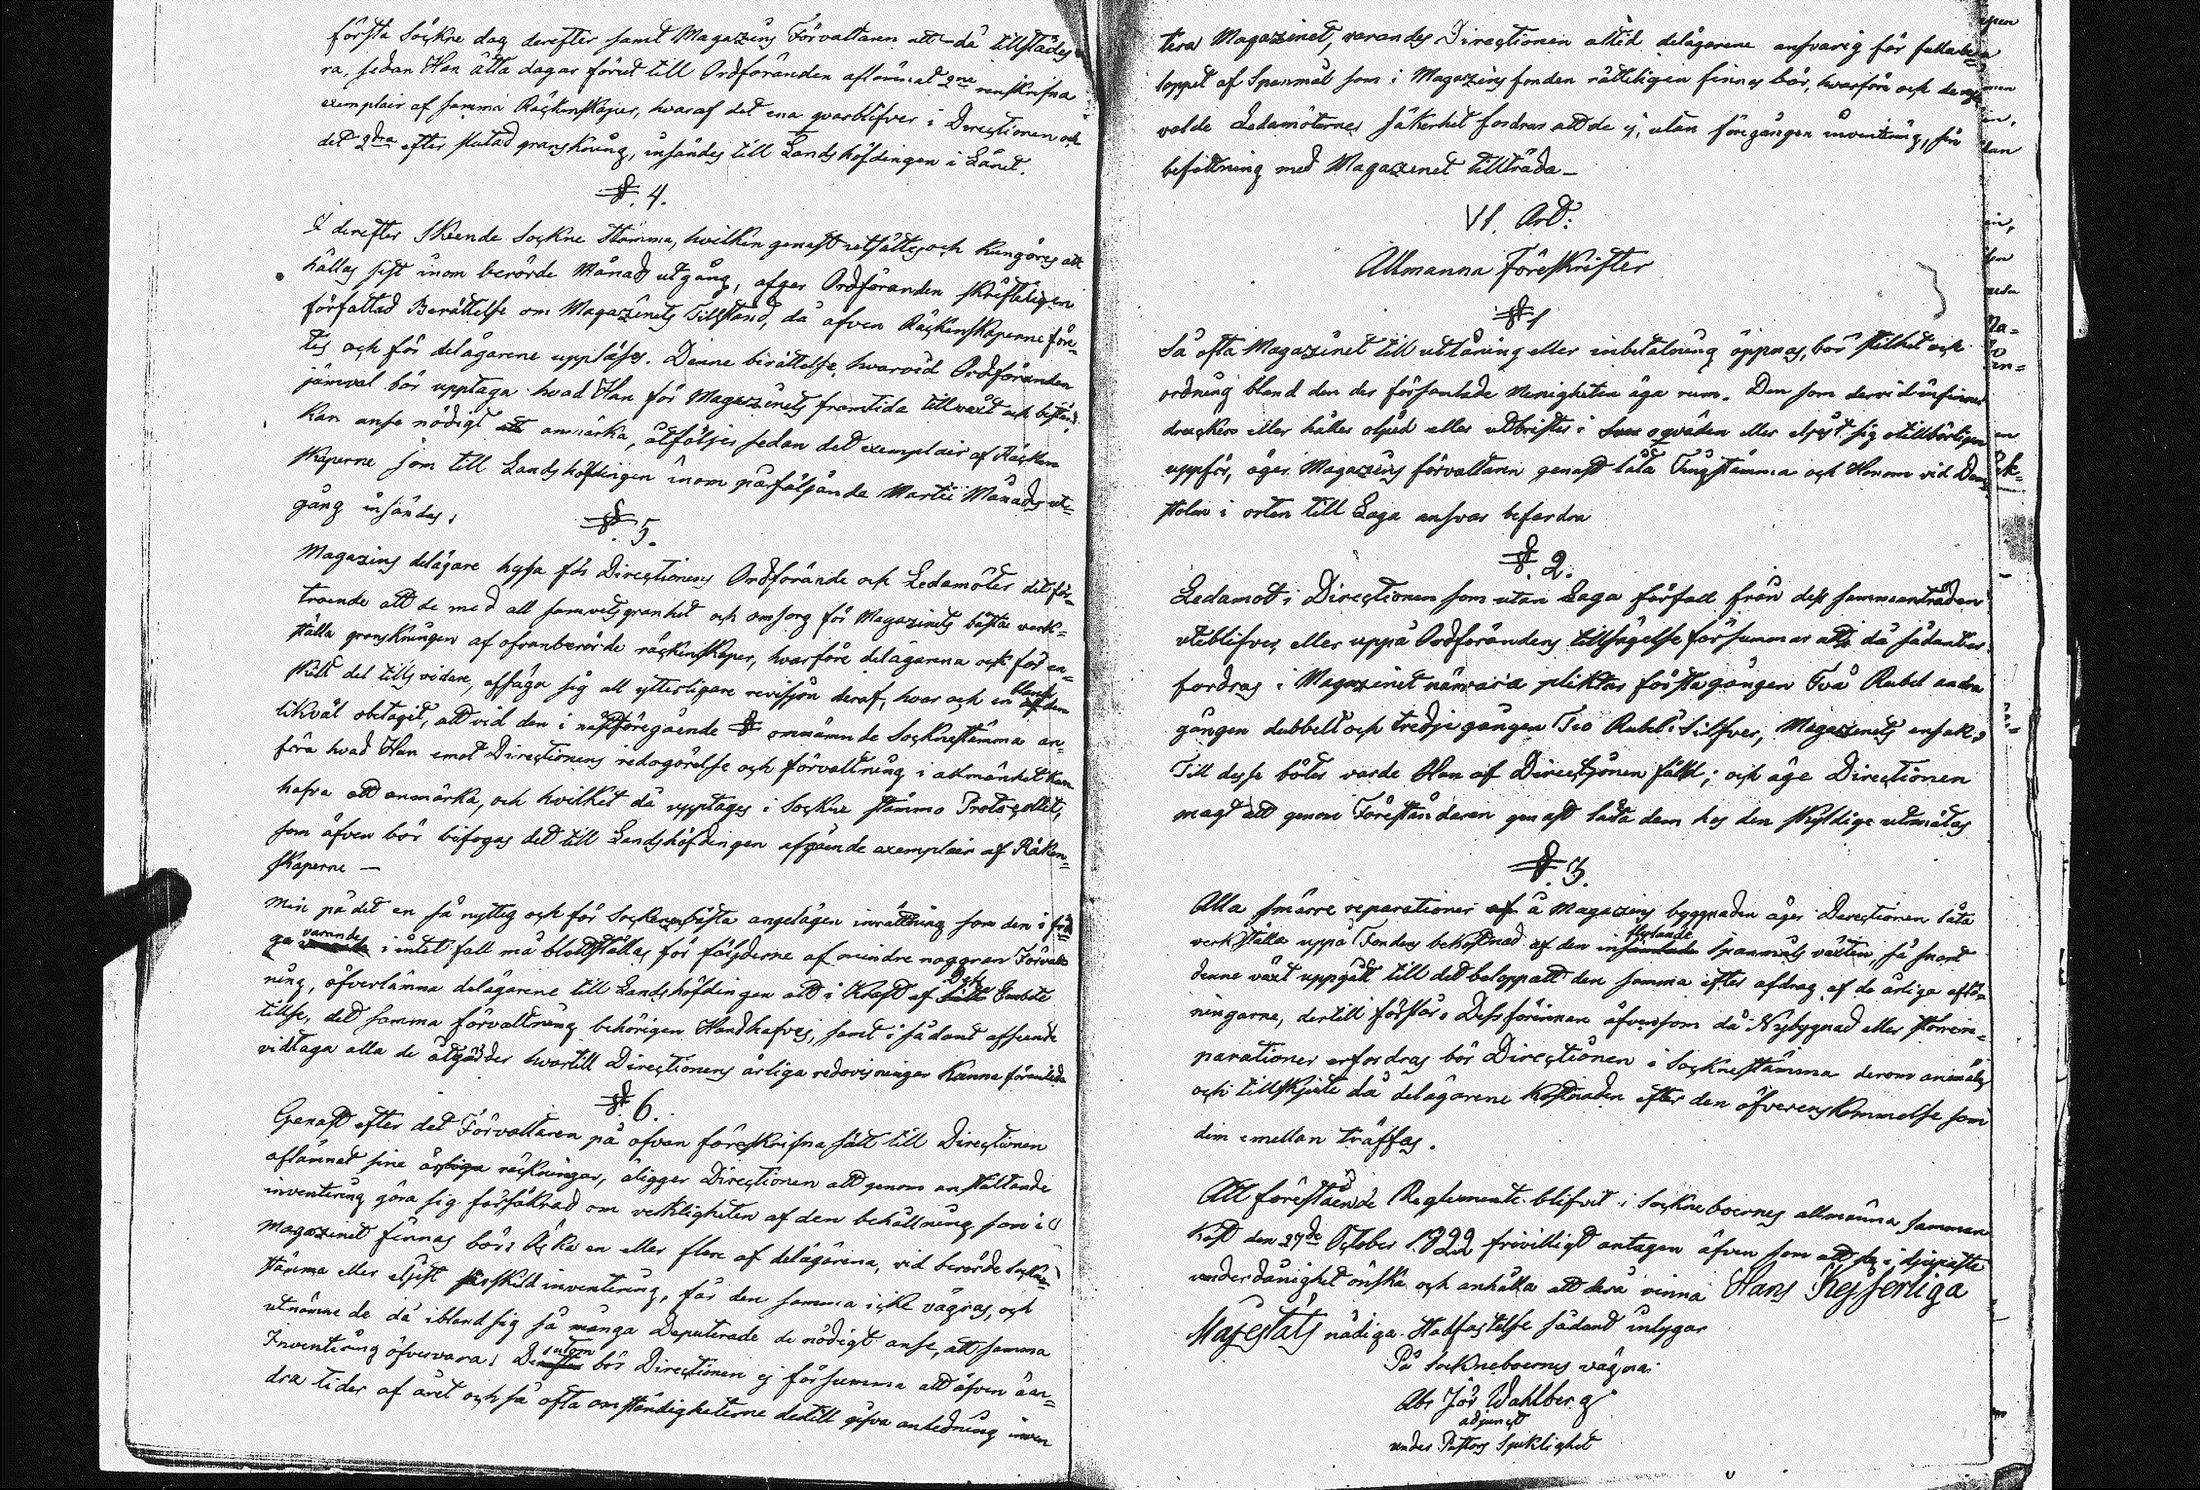 första Sockne dag derefter samt Magazins Förvaltaren att då tillstädes va-
ra, sedan Han åtta dagar förut till Ordföranden aflämnat 2ne renskrifna
exemplair af samma Räckenskaper, hvaraf det ena qvarblifver i Directionen och
det 2dra efter slutad granskning, insändes till Landshöfdingen i Länet.
§. 4.
I derefter skeende Sockne stämma, hvilken genast utsättes och kungöres att
hållas sist inom berörde Månads utgång, afger Ordföranden skrifteligen
författad Berättelse om Magazinets Tillstånd, då äfven Räckenskaperne före-
tes och för delägarene uppläses. Denne berättelse, hvarvid Ordföranden
jämväl bör upptaga hvad Han för Magazinets framtida tillväxt och bestånd
kan anse nödigt att anmärka, åtföljer sedan det exemplair af Räcken-
skaperne som till Landshöfdingen inom påföljande Martii Månads ut-
gång insändes.
§. 5.
Magazins delägare hysa för Directionens Ordförande och Ledamöter det för-
troende att de med all samvetsgranhet och omsorg för Magazinets bästa verk-
ställa granskningen af ofvanberörde räckenskaper, hvarföre delägarena ock för en-
skild del tills vidare, afsäga sig all ytterligare revission deraf, hvar och en bland af dem
likväl obetagit, att vid den i nästföregående § omnämnde Socknestämma an-
föra hvad Han emot Directionens redogörelse och förvaltning i allmänhet kan
hafva att anmärka, och hvilket då upptages i Sockne stämmo Protocollet,
som äfven bör bifogas det till Landshöfdingen afgående exemplair af Räken-
skaperne —
Men på det en så nyttig och för Socknens bästa angelägen inrättning som den i frå-
ga varande i intet fall må blottställas för följderne af mindre noggran Förvalt-
ning, öfverlämna delägarene till Landshöfdingen att i Kraft af Dess Embete
tillse, det samma förvaltning behörigen Handhafves, samt i sådant afseende
vidtaga alla de åtgärder hvartill Directionens årliga redovisningar kunna föranleda
§. 6.
Genast efter det Förvaltaren på ofvan föreskrifna sätt till Directionen
aflämnat sine årliga räckningar, åligger Directionen att genom anställande
inventering göra sig försäkrad om verkligheten af den behållning som i
Magazinet finnas bör. Äska en eller flere af delägarena, vid berörde Sockne-
stämma eller eljest särskild inventering, får den samma icke vägras, och
utnämne de då ibland sig så många Deputerade de nödigt anse, att samma
Inventering öfvervara. Desutom bör Directionen ej försumma att äfven å an-
dra tider af året och så ofta omständigheterne dertill gifva anledning inven
tera Magazinet, varandes Directionen alltid delägarene ansvarig för fulla be-
loppet af Spanmål som i Magazins fonden rätteligen finnas bör, hvarföre ock de ny-
valde Ledamöternes säkerhet fordrar att de ej, utan föregången inventering, sin
befattning med Magazinet tillträda —
VI. Art:
Allmänna Föreskrifter
§ 1
Så ofta Magazinet till utlåning eller inbetalning öppnas, bör stilhet och
ordning bland den der församlade Menigheten äga rum. Den som dervid infinner
drucken eller håller oljud eller utbrister i oqväden eller eljest sig otillbörligen
uppför, äger Magazins förvaltaren genast låta Tingstämma och Honom vid Dom-
stolen i orten till Laga ansvar befordra
§. 2.
Ledamot i Directionen som utan Laga förfall från dess sammanträden
uteblifver, eller uppå Ordförandens tillsägelse försummar att, då sådant er-
fordras i Magazinet närvara pliktar första gången Två Rubel andra
gången dubbelt och tredje gången Tio Rubel Silfver, Magazinets ensak.
Till desse böter varde Han af Directionen fäld; och äge Directionen
magt att genom Föreståndaren genast låta dem hos den skyldige utmätas
§. 3.
Alla smärre reparationer af å Magazins byggnaden äger Directionen låta
verkställa uppå Fondens bekostnad af den inflytande Spanmåls växten, så snart
denne växt uppgått till det belopp att den samma efter afdrag af de årliga aflö-
ningarne, dertill förslår. Dessförinnan äfvensom då Nybygnad eller större re-
parationer erfordras bör Directionen i Socknestämma derom anmäla,
och tillskjute då delägarene kostnaden efter den öfverenskommelse som
dem emellan träffas.
Att föreståendé Reglemente blifvit i Sockneboernes allmänna samman-
kost den 27de October 1822 frivilligt antagen äfven som att de i djupaste
underdånighet önska och anhålla att dera vinna Hans Kejserliga
Majestäts nådiga Stadfästelse sådant intygar
På Sockneboernes vägna:
Abr Joh Wahlberg
adjunct
under Pastors Sjuklighet